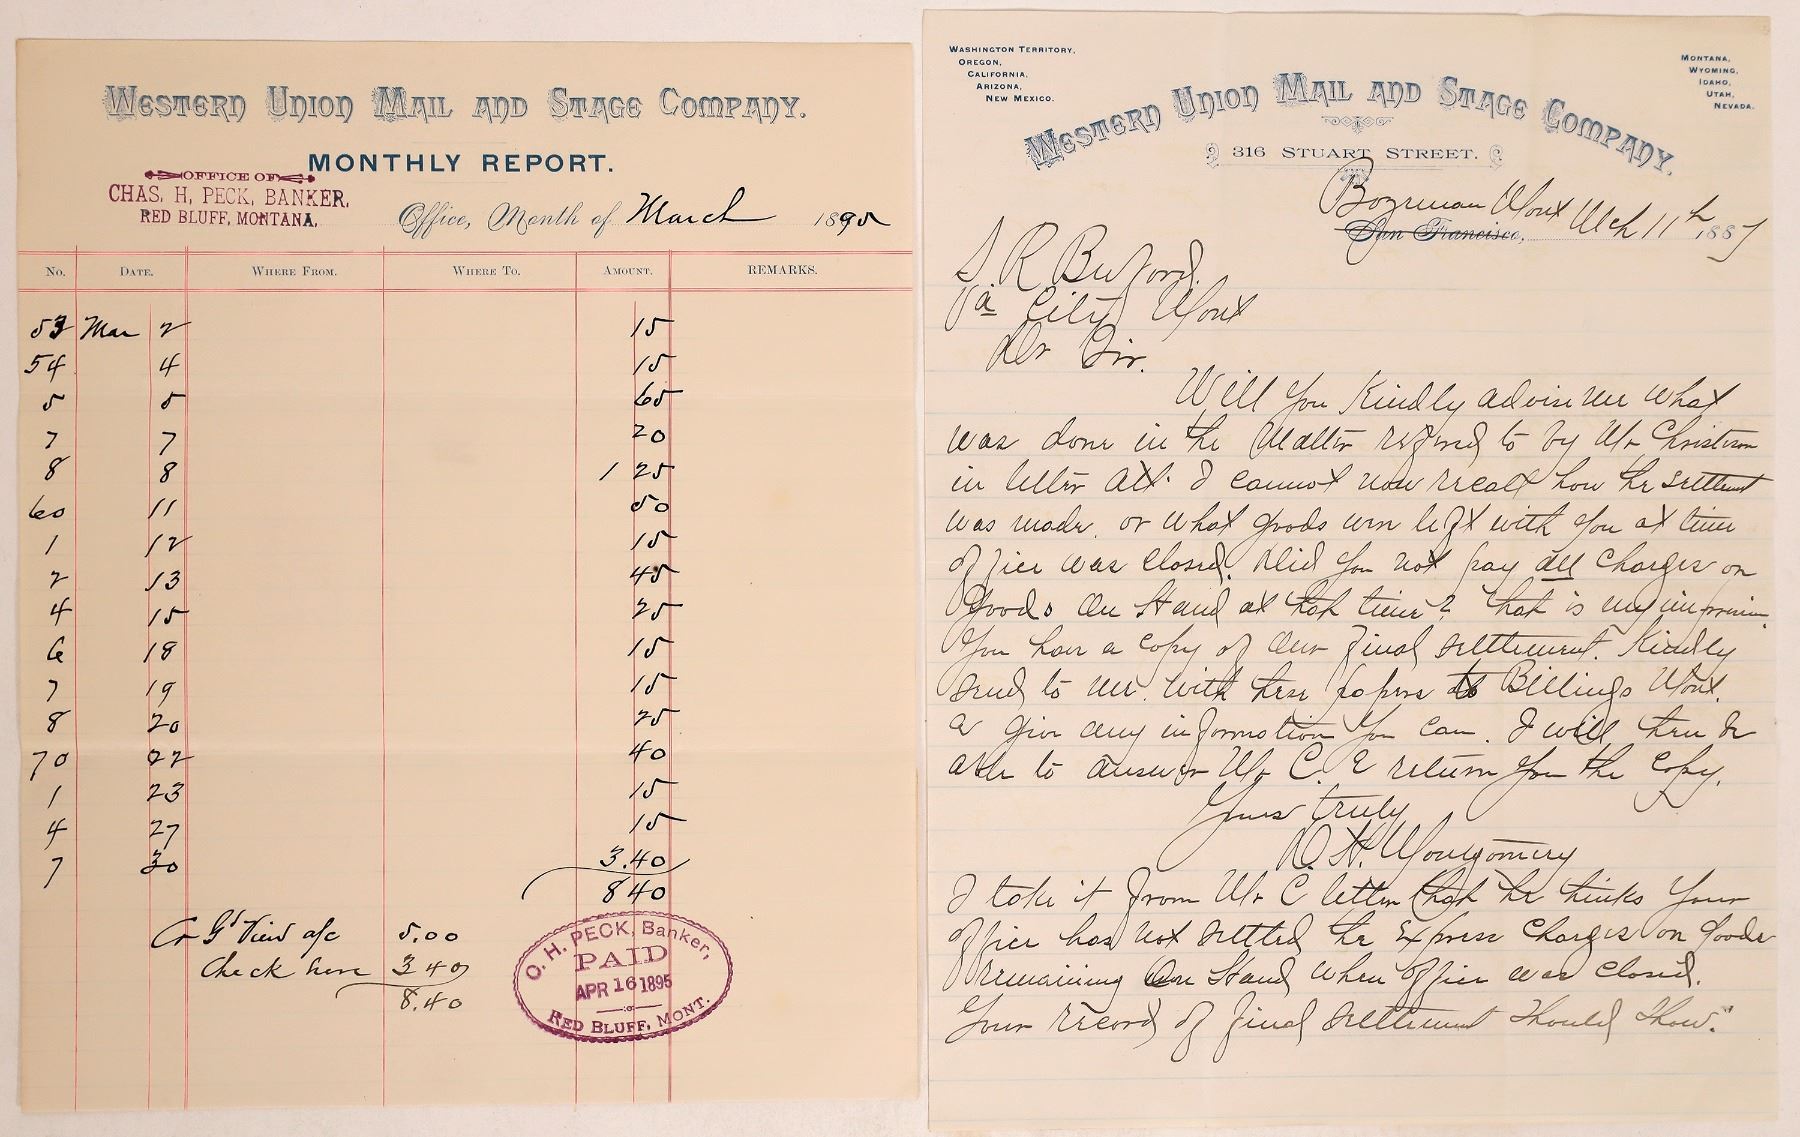 WESTERN UNION MAIL AND STAGE COMPANY.
MONTHLY REPORT.
OFFICE OF
CHAS. H. PECK, BANKER,
RED BLUFF, MONTANA.
Office, Month of March 1895
No. DATE. WHERE FROM. WHERE TO. AMOUNT. REMARKS.
53 Mar 2 15
54 4 15
5 5 65
7 7 20
8 8 1 25
60 11 50
1 12 15
2 13 45
4 15 25
6 18 15
7 19 15
8 20 25
70 22 40
1 23 15
4 27 15
7 30 3.40
8 40
Cr Gd View a/c 5.00
Check here 3 40
8.40
C. H. PECK, Banker,
PAID
APR 16 1895
RED BLUFF, MONT.
WASHINGTON TERRITORY,
OREGON,
CALIFORNIA,
ARIZONA,
NEW MEXICO.
MONTANA,
WYOMING,
IDAHO,
UTAH,
NEVADA.
WESTERN UNION MAIL AND STAGE COMPANY.
316 STUART STREET.
Bozeman Mont Mch 11th 1887
San Francisco,
S. R Buford.
Va City Mont
Dr Sir.
Will you Kindly advise me what
was done in the Matter refered to by Mr Christeson
in letter att. I cannot now recall how the settlmt
was made. or what goods wer left with you at time
office was closed. Did you not pay all charges on
Goods On Hand at that time? that is my impression.
You have a copy of our final settlement. Kindly
send to me. with these papers to Billings Mont.
& give any information you can. I will then be
able to answer Mr C. & return you the copy.
Yours truly
D. H. Montgomery
I take it from Mr C letter that he thinks your
office has not settled the Express Charges on Goods
remaining On Hand when office was closed.
Your record of final settlement should show."